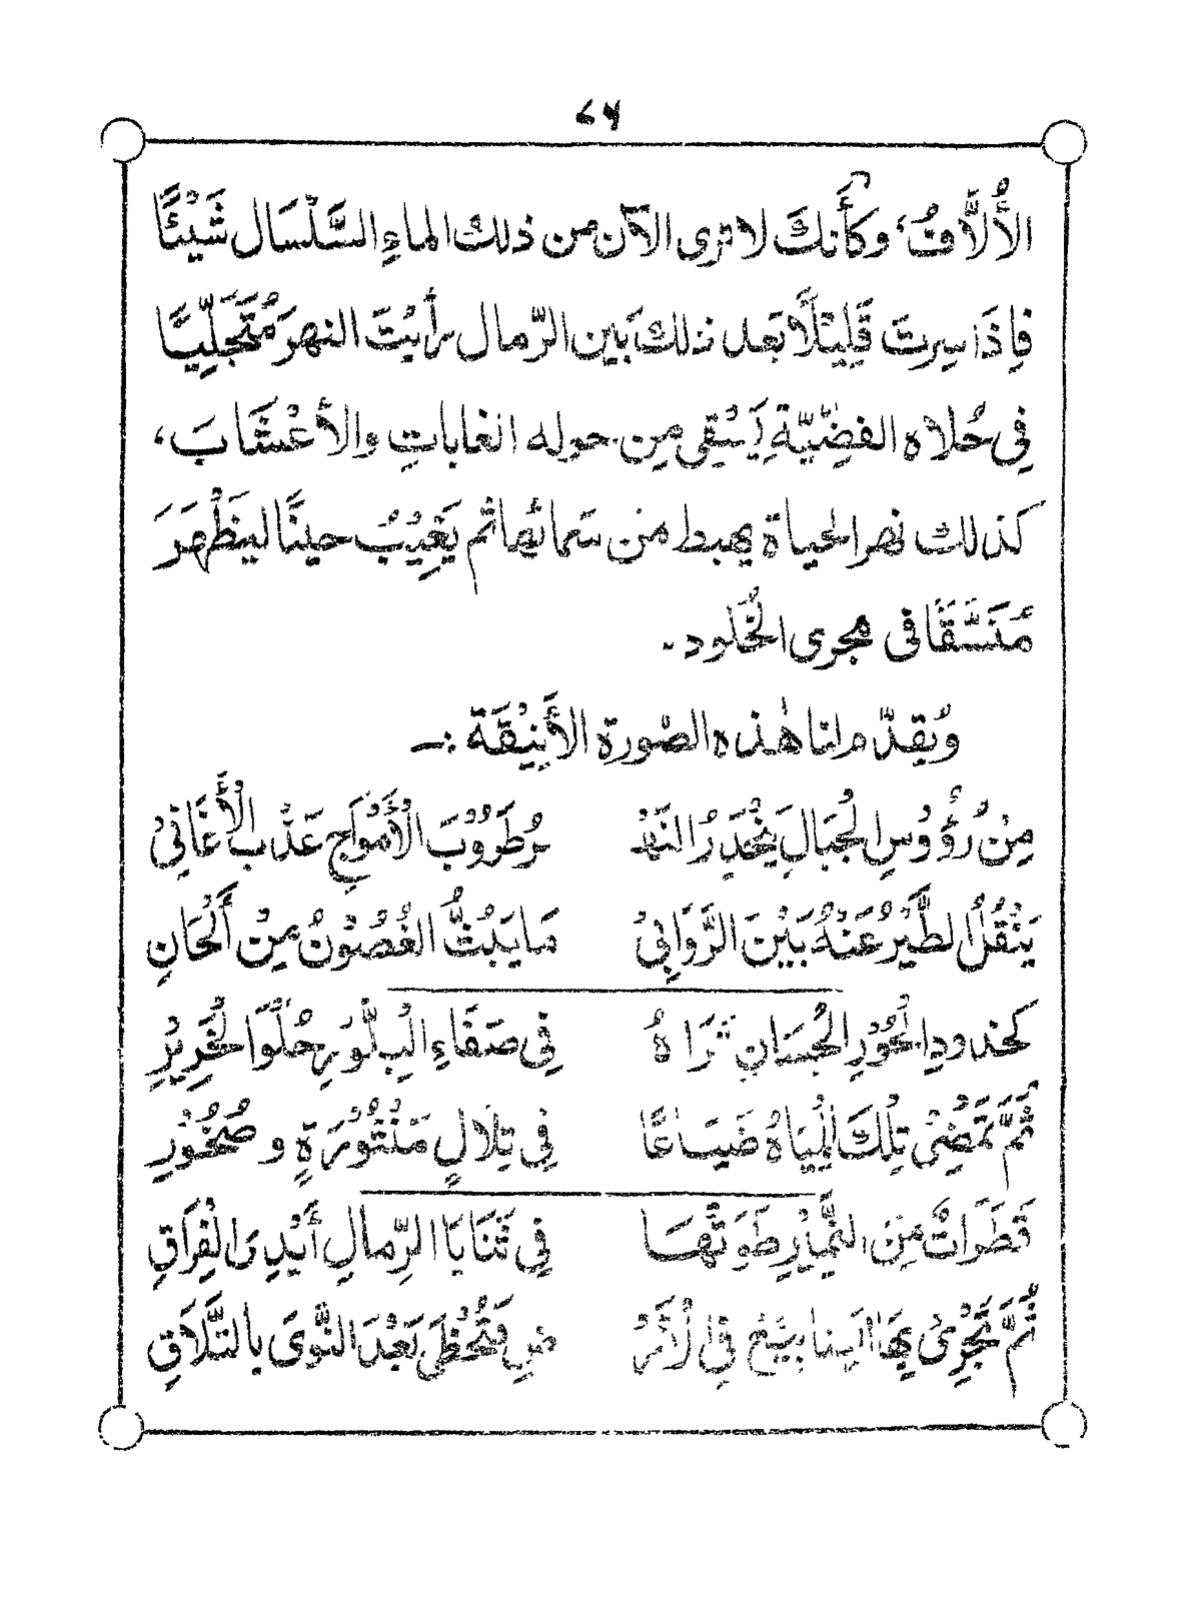 ٤٦
الأُلاَّفُ، وكَأَنكَ لا ترى الآن من ذلك الماءِ السَّلْسَال شَيْئًا
فإِذَا سِرتَ قَلِيْلًا بَعد ذلك بَين الرّمال رأيْتَ النهرَ مُتَجَلِّيًا
فِي حُلاه الفضِّيَّةِ يَسْقِي مِن حوله الغاباتِ والأعْشَابَ،
كذلك نهر الحياة يهبط من سَمائها ثم يَغِيْبُ حينًا ليَظْهَرَ
مُتَسَّقًا في مجرى الخُلود.
ويُقدّم لنا هٰذه الصّورة الأَنِيْقَة :—
مِنْ رُؤُوْسِ الْجِبَالِ يَنْحَدِرُ النَّهْـ ـرُ طَرُوْبَ الْأَمْوَاجِ عَذْبَ الْأَغَانِيْ
يَنْقُلُ الطَّيْرُ عَنْهُ بَيْنَ الرَّوَابِيْ مَا يَبُثُّ الغُصُوْنُ مِنْ أَلْحَانِ
كخدودِ الْحُوْرِ الْحِسَانِ تَرَاهُ فِي صَفَاءِ الْبِلَّوْرِ حُلْوَ الْخَرِيْرِ
ثُمَّ تَمْضِيْ تِلْكَ الْمِيَاهُ ضَيَاعًا فِي تِلَالٍ مَنْثُوْرَةٍ وصُخُوْرِ
قَطَرَاتٌ مِنَ النَّمِيْرِ طَوَتْهَا فِي ثَنَايَا الرِّمالِ أَيْدِي الْفِرَاقِ
ثُمَّ تَجْرِيْ بِهَا الينابيعُ فِي الْأَرْ ضِ فَتَحْظَى بَعْدَ النَّوَى بِالتَّلَاقِ